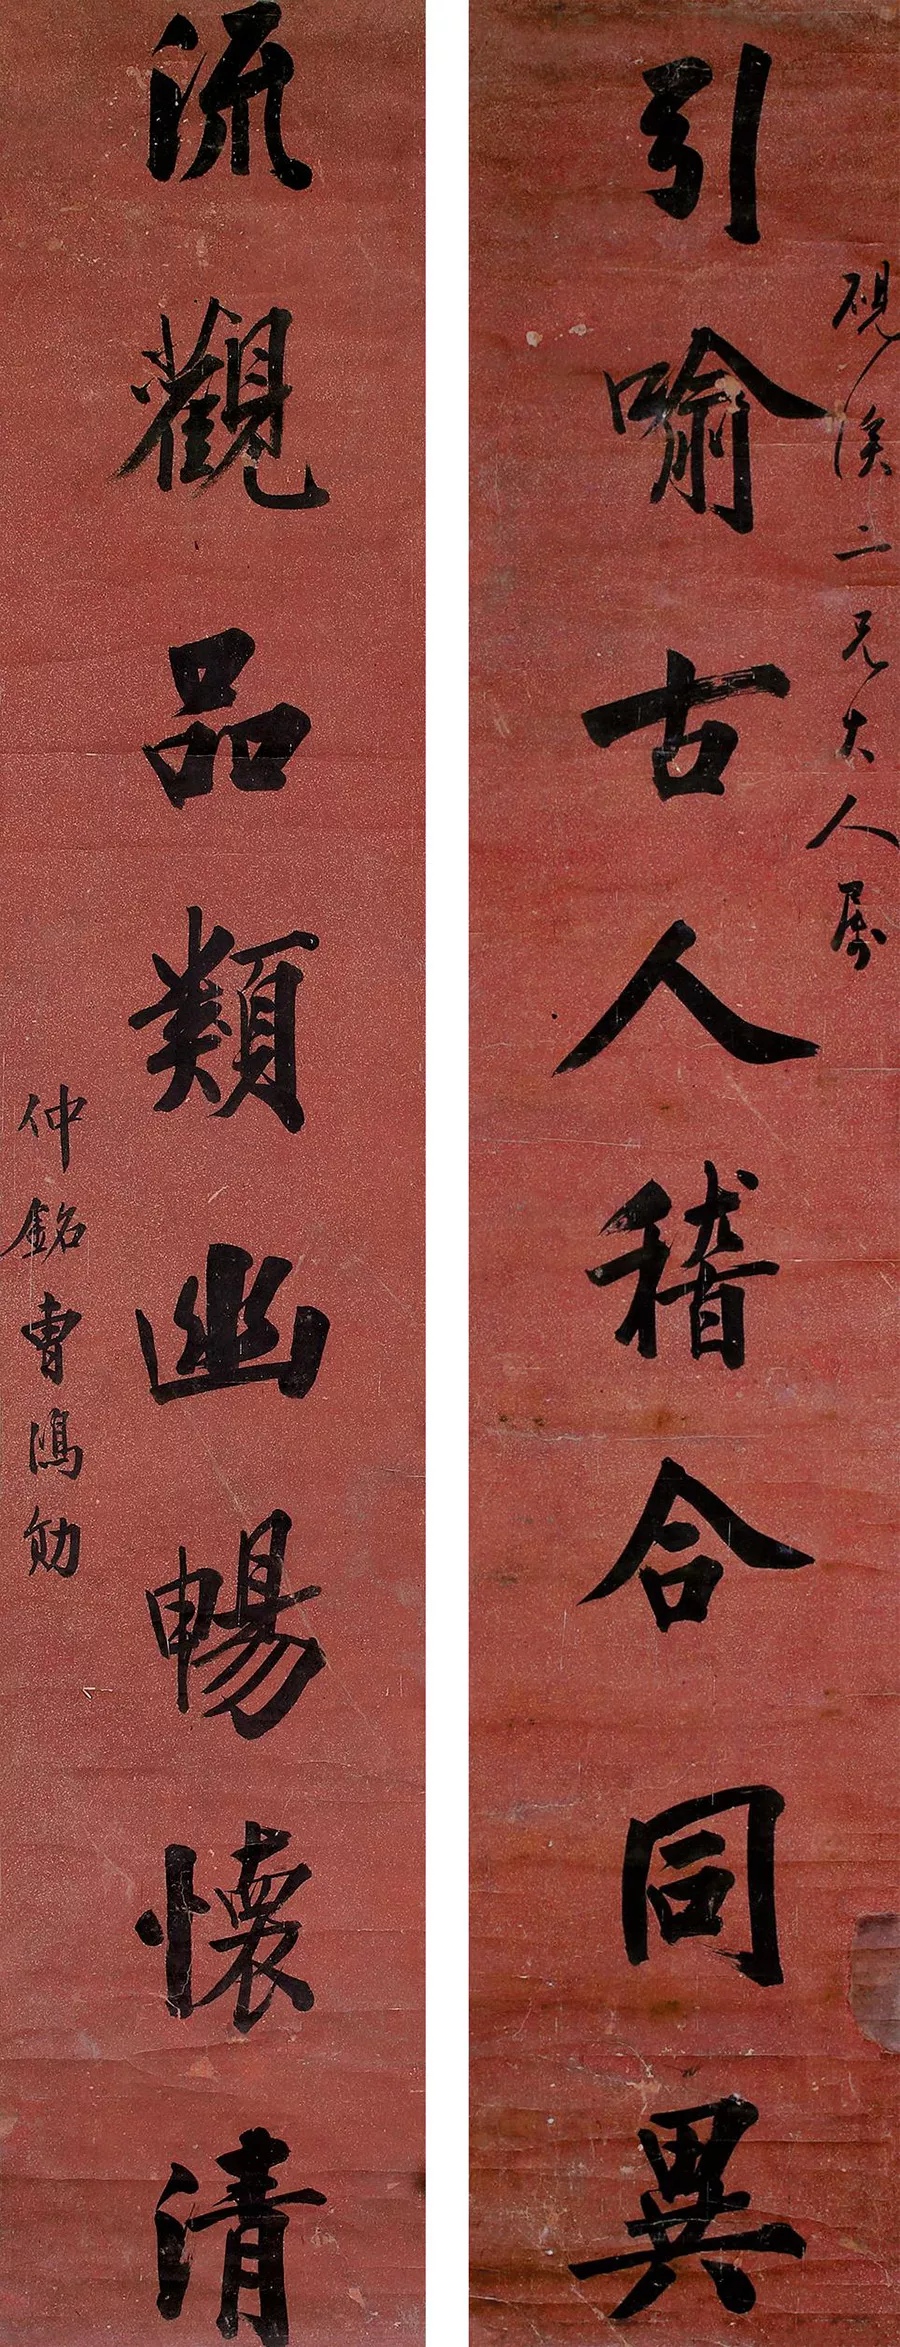 砚溪二兄大人属
引喻古人稽合同異
流觀品類幽暢懷清
仲銘曹鴻勛